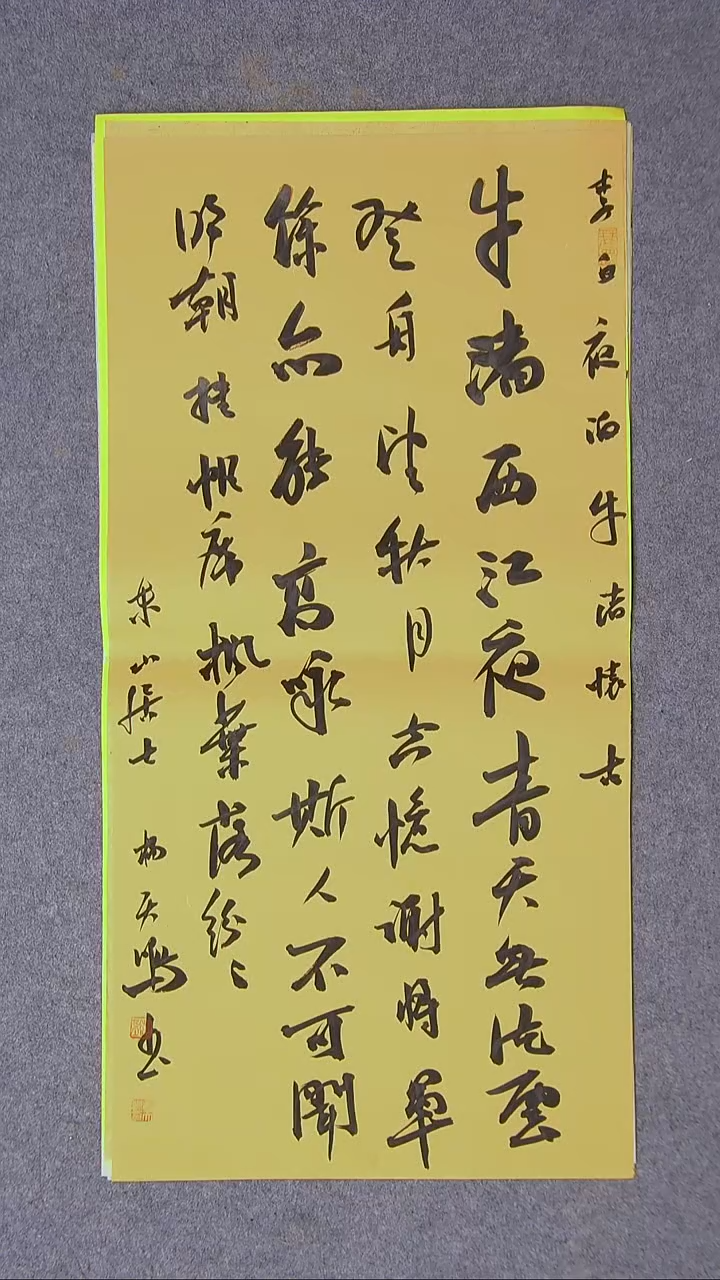 李白夜泊牛渚懷古
牛渚西江夜青天無片雲
登舟望秋月空憶謝將軍
餘亦能高咏斯人不可聞
明朝挂帆席楓葉落紛々
山居士 楊天書